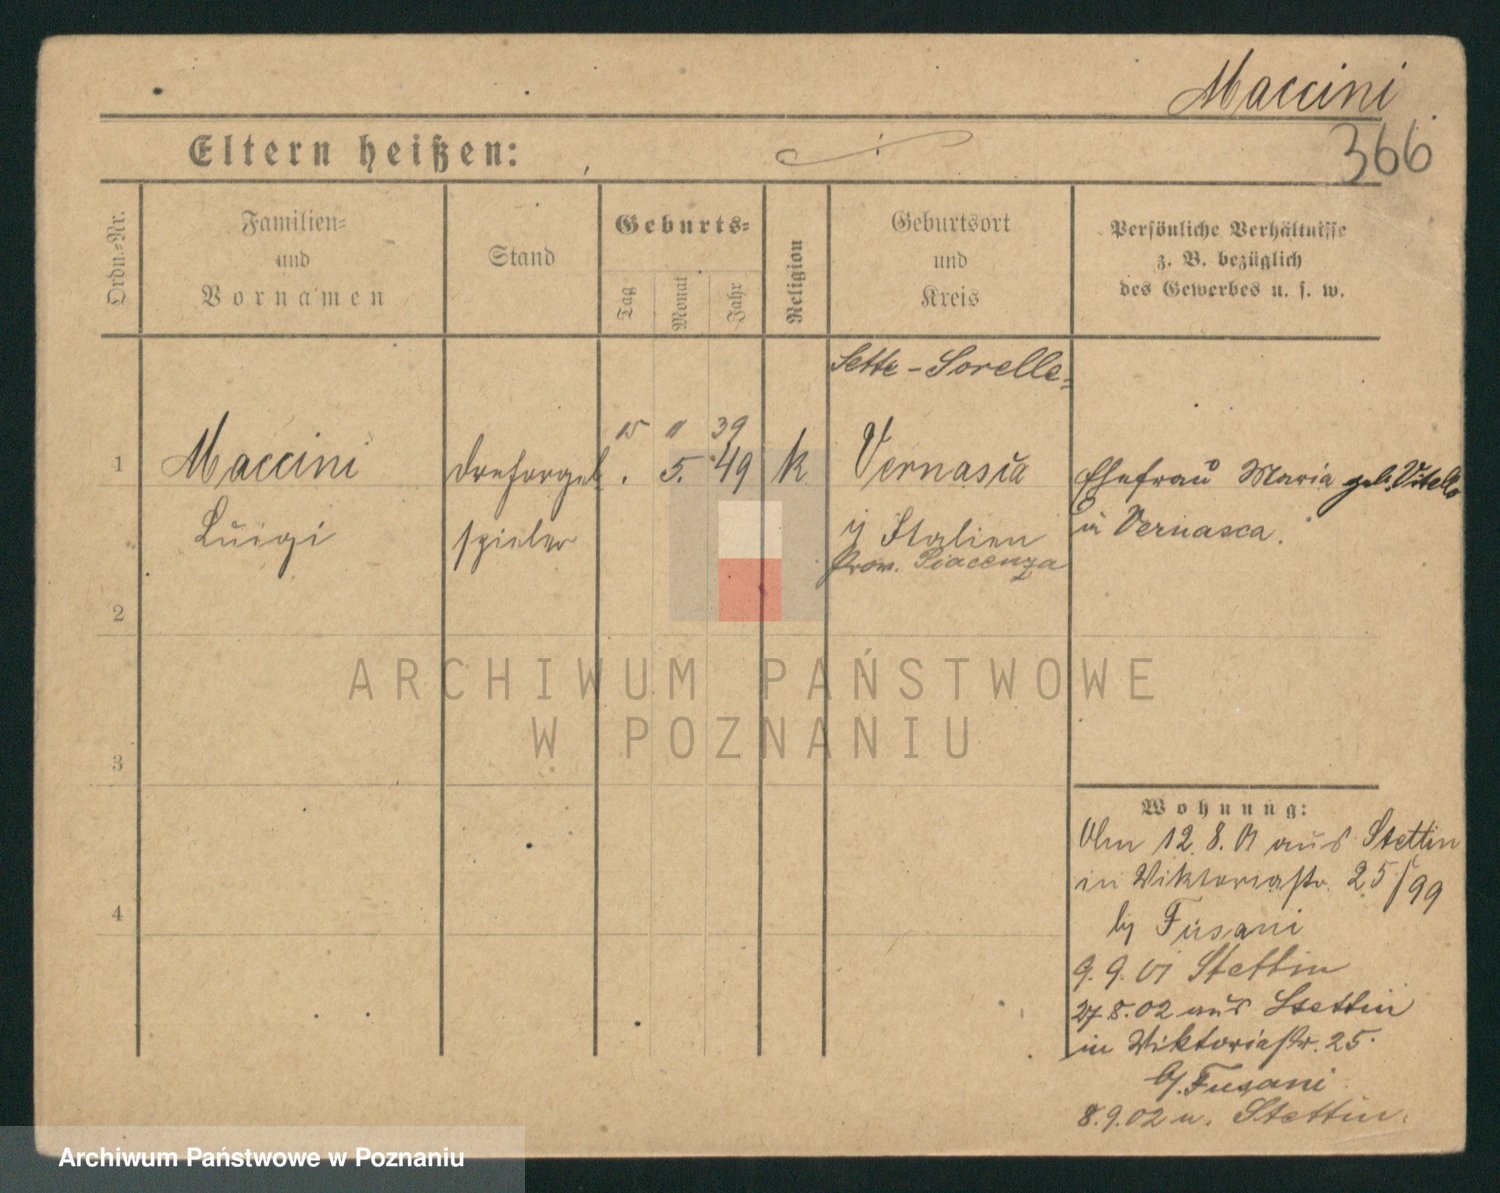 Maccini
366
Eltern heißen:
Ordn.-Nr.
Familien-
und
Vornamen
Stand
Geburts-
Tag
Monat
Jahr
Religion
Geburtsort
und
Kreis
Persönliche Verhältnisse
z. B. bezüglich
des Gewerbes u. s. w.
Sette-Sorelle-
15 11 39
1 Maccini Drehorgel . 5. 49 k Vernasca Ehefrau Maria geb. Vitello
Luigi spieler i/ Italien in Vernasca.
Prov. Piacenza
2
3
4
Wohnung:
12.8.01 aus Stettin
in Viktoriastr. 25/99
by Fusani
9.9.01 Stettin
27.8.02 aus Stettin
in Viktoriastr. 25.
by Fusani
8.9.02 n. Stettin.
ARCHIWUM PAŃSTWOWE
W POZNANIU
Archiwum Państwowe w Poznaniu